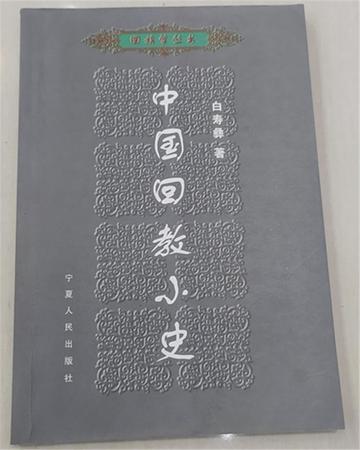 回族学丛书
中国回教小史
白寿彝 著
宁夏人民出版社